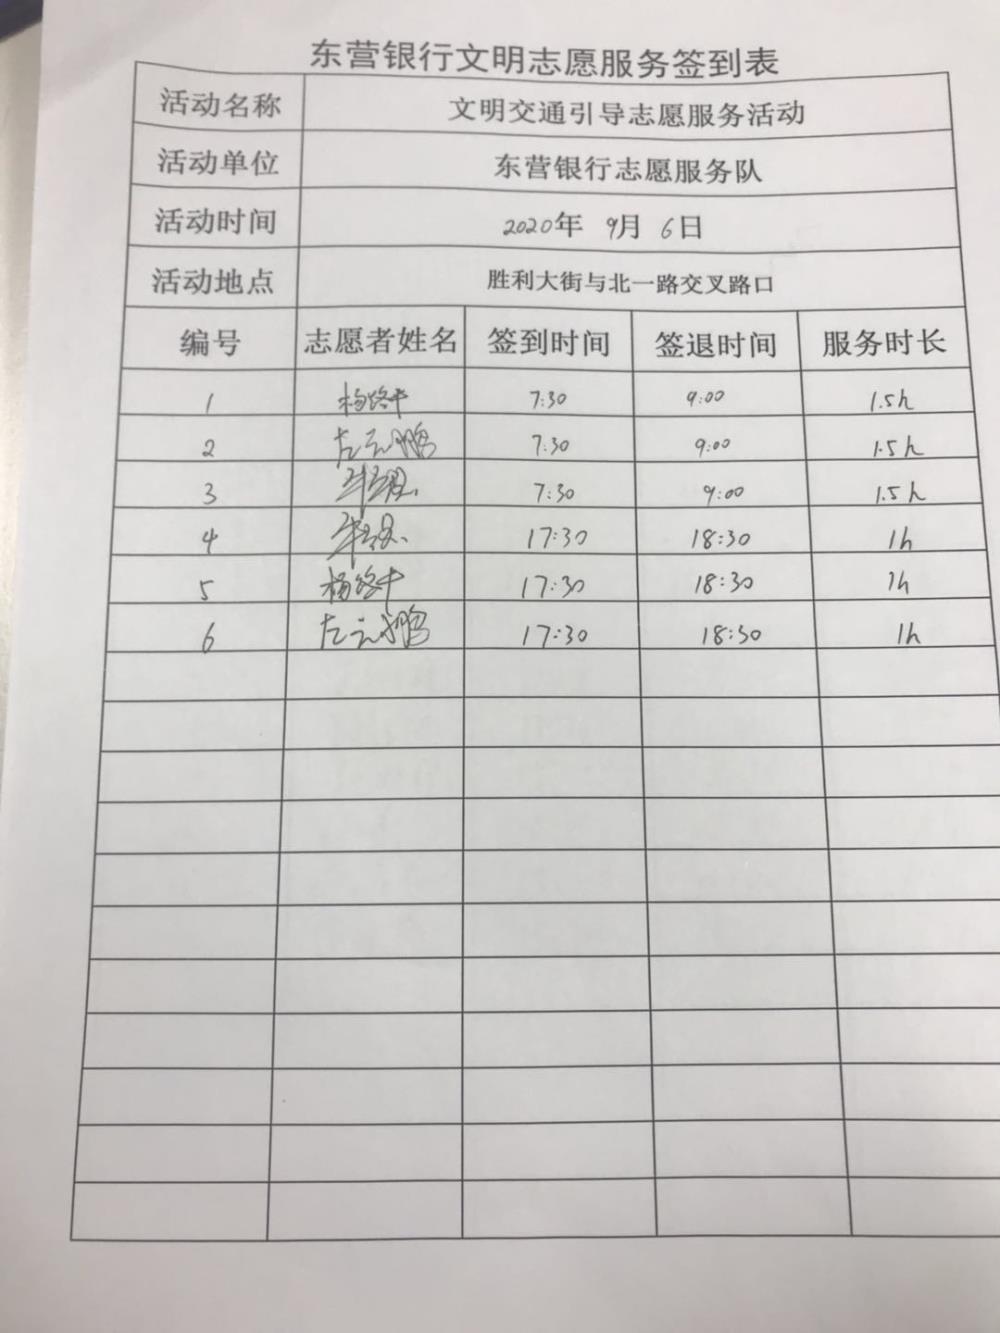 东营银行文明志愿服务签到表
活动名称 文明交通引导志愿服务活动
活动单位 东营银行志愿服务队
活动时间 2020年 9月 6日
活动地点 胜利大街与北一路交叉路口
编号 志愿者姓名 签到时间 签退时间 服务时长
1 7:30 9:00 1.5h
2 左云鹏 7:30 9:00 1.5h
3 7:30 9:00 1.5h
4 17:30 18:30 1h
5 17:30 18:30 1h
6 左云鹏 17:30 18:30 1h